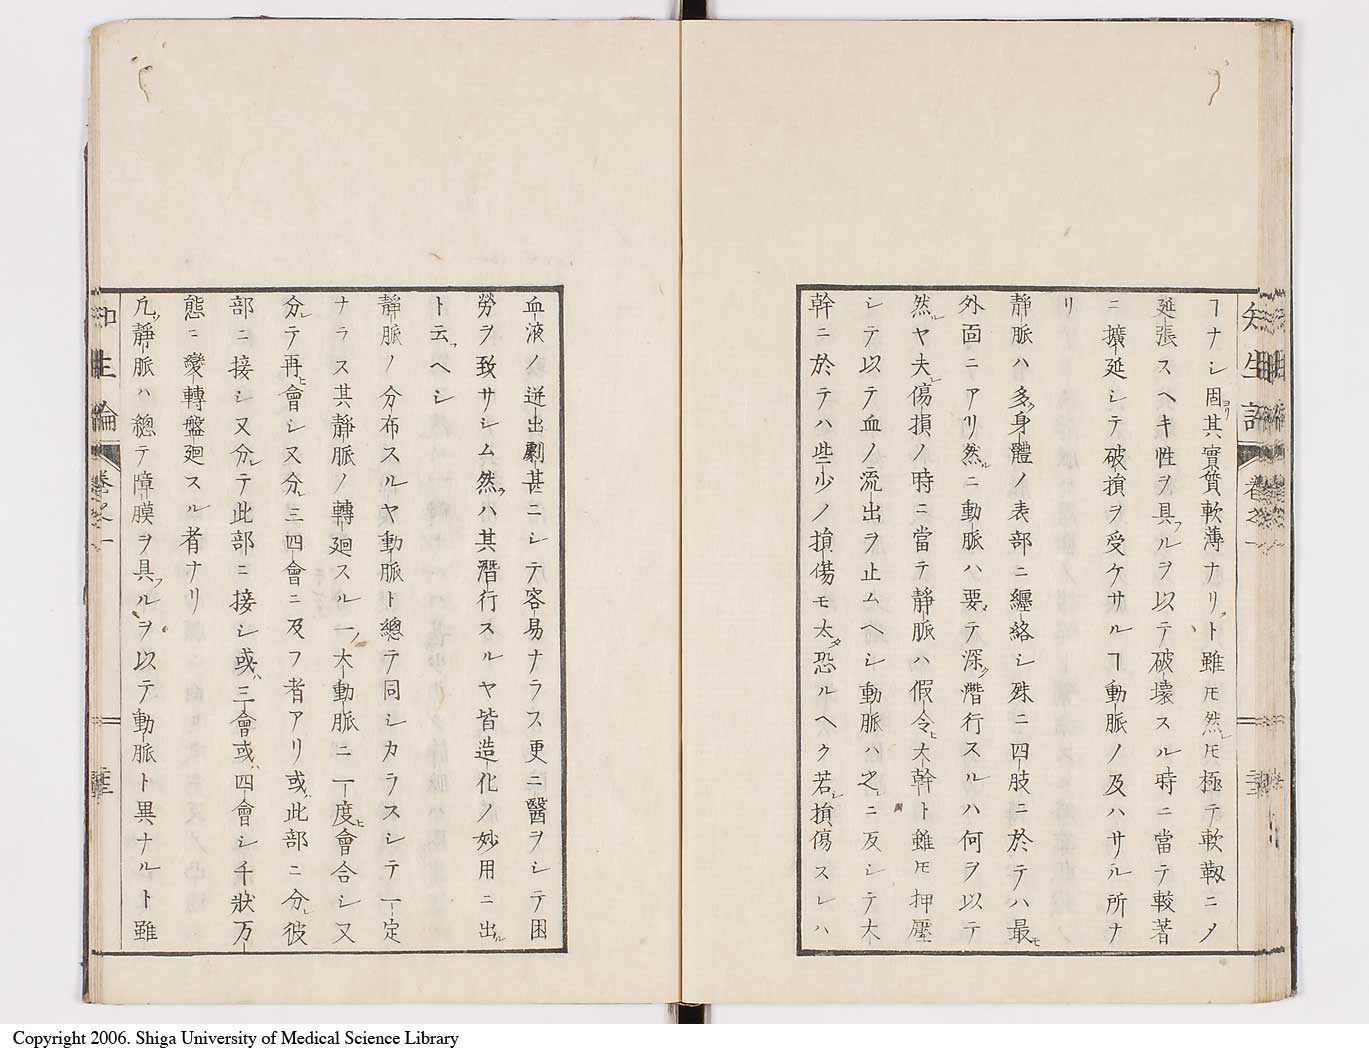 ヿナシ固ヨリ其實質軟薄ナリト雖𪜈然レ𪜈極テ軟靱ニメ
延張スヘキ性ヲ具フルヲ以テ破壊スル時ニ當テ較著
ニ擴延シテ破損ヲ受ケサルヿ動脈ノ及ハサル所ナ
リ
靜脈ハ多ク身體ノ表部ニ纒絡シ殊ニ四肢ニ於テハ最モ
外面ニアリ然ルニ動脈ハ要テ深ク潛行スルハ何ヲ以テ
然ルヤ夫レ傷損ノ時ニ當テ靜脈ハ假令ヒ大幹ト雖𪜈押壓
シテ以テ血ノ流出ヲ止ムヘシ動脈ハ之ニ反シテ大
幹ニ於テハ些少ノ損傷モ太タ恐ルヘク若シ損傷スレハ
血液ノ迸出劇甚ニシテ容易ナラス更ニ醫ヲシテ困
勞ヲ致サシム然ラハ其潛行スルヤ皆造化ノ妙用ニ出ル
ト云フヘシ
靜脈ノ分布スルヤ動脈ト總テ同シカラスシテ一定
ナラス其靜脈ノ轉廻スル一ノ大動脈ニ一度ヒ會合シ又
分レテ再ヒ會シ又分レ三四會ニ及フ者アリ或ハ此部ニ分レ彼
部ニ接シ又分レテ此部ニ接シ或ハ三會或ハ四會シ千狀万
態ニ變轉盤廻スル者ナリ
凡ソ靜脈ハ總テ障膜ヲ具フルヲ以テ動脈ト異ナルト雖
知生論 卷之一
Copyright 2006. Shiga University of Medical Science Library